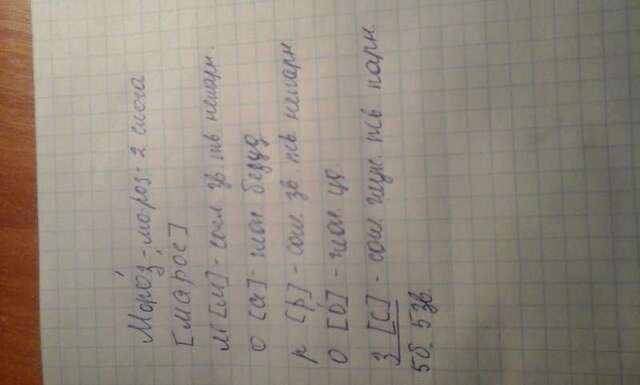 Моро́з - мороз - 2 слога
[марос]
м [м] - согл. зв. тв. непарн.
о [а] - глас. безуд.
р [р] - согл. зв. тв. непарн.
о [о́] - глас. уд.
з [с] - согл. глух. тв. парн.
5б. 5зв.